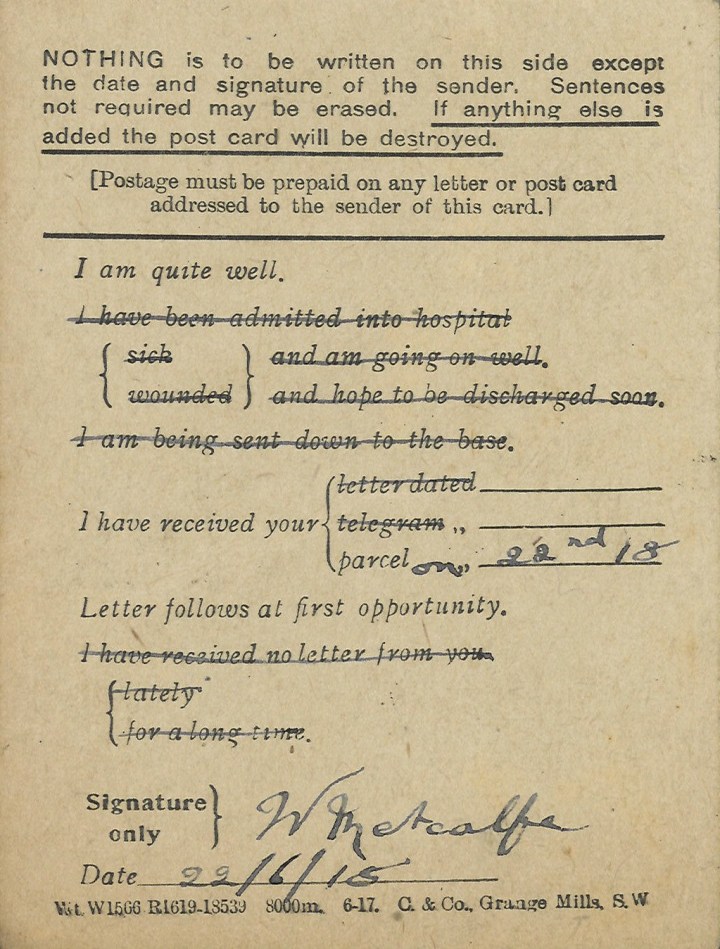 NOTHING is to be written on this side except
the date and signature of the sender. Sentences
not required may be erased. If anything else is
added the post card will be destroyed.
[Postage must be prepaid on any letter or post card
addressed to the sender of this card.]
I am quite well.
I have been admitted into hospital
{ sick } and am going on well.
{ wounded } and hope to be discharged soon.
I am being sent down to the base.
letter dated
I have received your { telegram ,,
parcel on ,, 22nd 18
Letter follows at first opportunity.
I have received no letter from you
{ lately
for a long time.
Signature } W Metcalfe
only
Date 22/6/18
Wt. W1566 R1619-18539 8000m. 6-17. C. & Co., Grange Mills, S.W